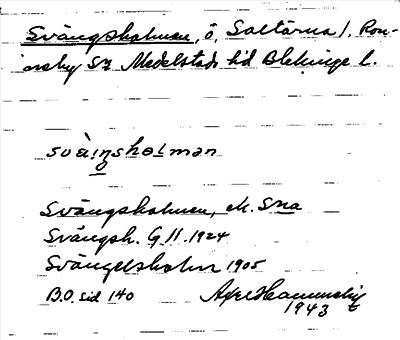 Svängsholmen, ö, Saltärna l. Ron-
neby Sn Medelstads hd Blekinge l.
svàiŋshɷlmən
Svängsholmen, ek. Sna
Svängsh. G II. 1924
Svängelsholm 1905
B.O. sid 140
1943